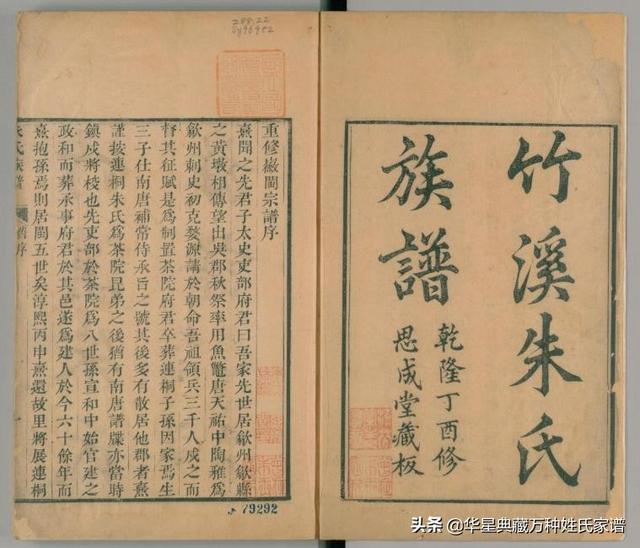 竹溪朱氏
族譜
乾隆丁酉修
思成堂藏板
重修徽閩宗譜序
熹聞之先君子太史吏部府君曰吾家先世居歙州歙縣
之黃墩相傳望出吳郡秋祭率用魚鼈唐天祐中陶雅爲
歙州刺史初克婺源請於朝命吾祖領兵三千人戍之而
督其征賦是爲制置茶院府君卒葬連桐子孫因家焉生
三子仕南唐補常侍承旨之號其後多有散居他郡者熹
謹按連桐朱氏爲茶院昆弟之後猶有南唐譜牒亦當時
鎮戍將校也先吏部於茶院爲八世孫宣和中始官建之
政和而葬承事府君於其邑遂爲建人於今六十餘年而
熹抱孫焉則居閩五世矣淳熙丙申熹還故里將展連桐
朱氏族譜 譜序 一
79292
头条 @华星典藏万种姓氏家谱